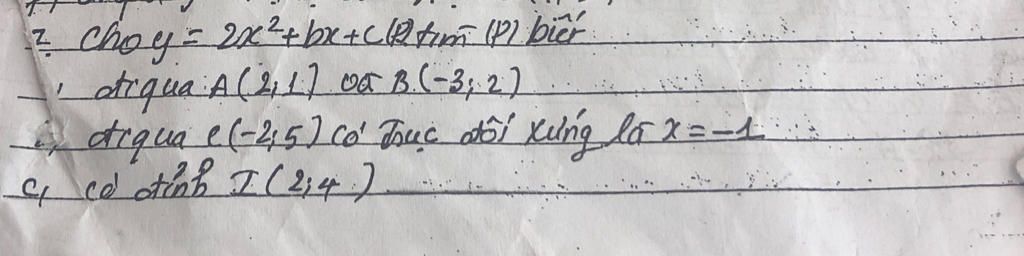 2 Cho y = 2x²+bx+c (P) tìm (P) biết
đi qua A(2;1) và B(-3;2)
đi qua C(-2;5) có trục đối xứng là x=-1
c, có đỉnh I(2;4)